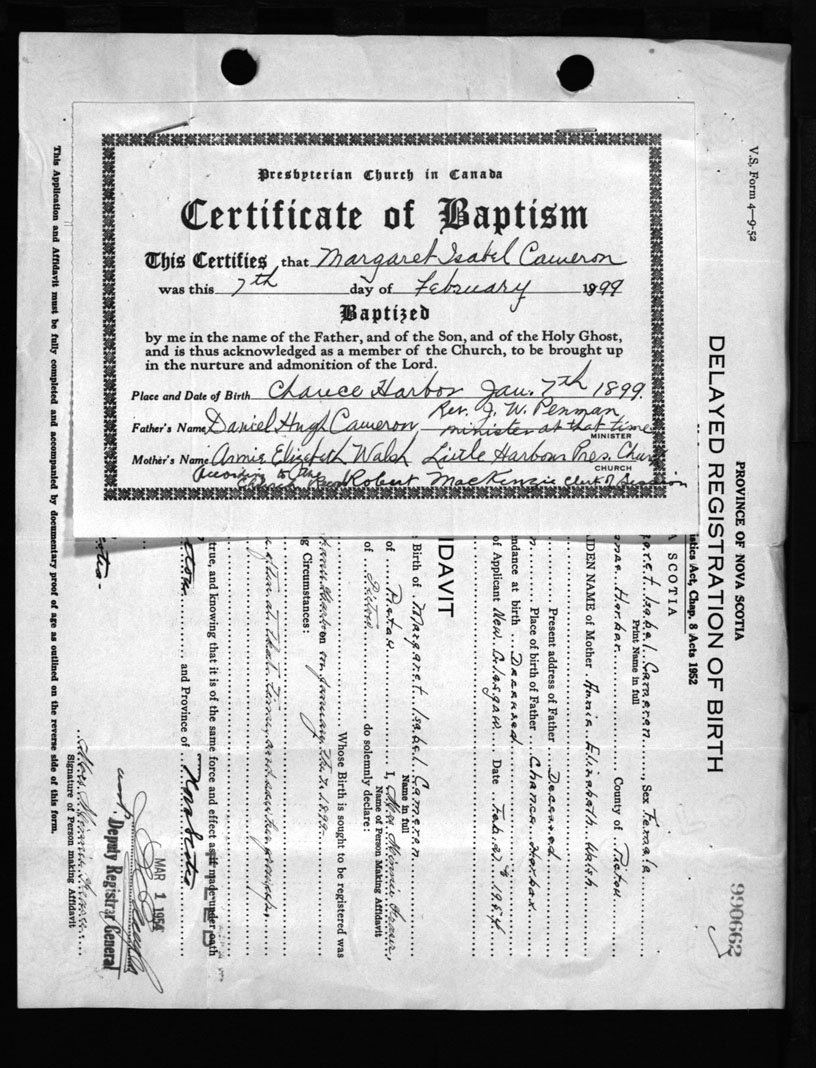 Presbyterian Church in Canada
Certificate of Baptism
This Certifies that Margaret Isabel Cameron
was this 7th day of February 1899
Baptized
by me in the name of the Father, and of the Son, and of the Holy Ghost,
and is thus acknowledged as a member of the Church, to be brought up
in the nurture and admonition of the Lord.
Place and Date of Birth Chance Harbor Jan. 7th 1899.
Rev. J. W. Penman
Father's Name Daniel Hugh Cameron minister at that time
MINISTER
Mother's Name Annie Elizabeth Walsh Little Harbour Pres. Church
CHURCH
According to the
Church Robert MacKenzie Clerk of Session
V.S. Form 4—9-52
990662
PROVINCE OF NOVA SCOTIA
DELAYED REGISTRATION OF BIRTH
istics Act, Chap. 8 Acts 1952
A SCOTIA
garet Isabel Cameron, Sex Female
Print Name in full
Harbor County of Pictou
IDEN NAME of Mother Annie Elizabeth Walsh
Present address of Father Deceased
Place of birth of Father Chance Harbor
ndance at birth Deceased
of Applicant New Glasgow Date Feb. 1954
IDAVIT
Birth of Margaret Isabel Cameron
Name in full
of Pictou I, Mrs Minnie
Name of Person Making Affidavit
of Pictou do solemnly declare:
Whose Birth is sought to be registered was
on January the 7, 1899
g Circumstances:
at that time
true, and knowing that it is of the same force and effect as if made under oath
and Province of Nova Scotia
MAR 1 1954
Deputy Registrar General
Mrs. Minnie
Signature of Person making Affidavit
This Application and Affidavit must be fully completed and accompanied by documentary proof of age as outlined on the reverse side of this form.